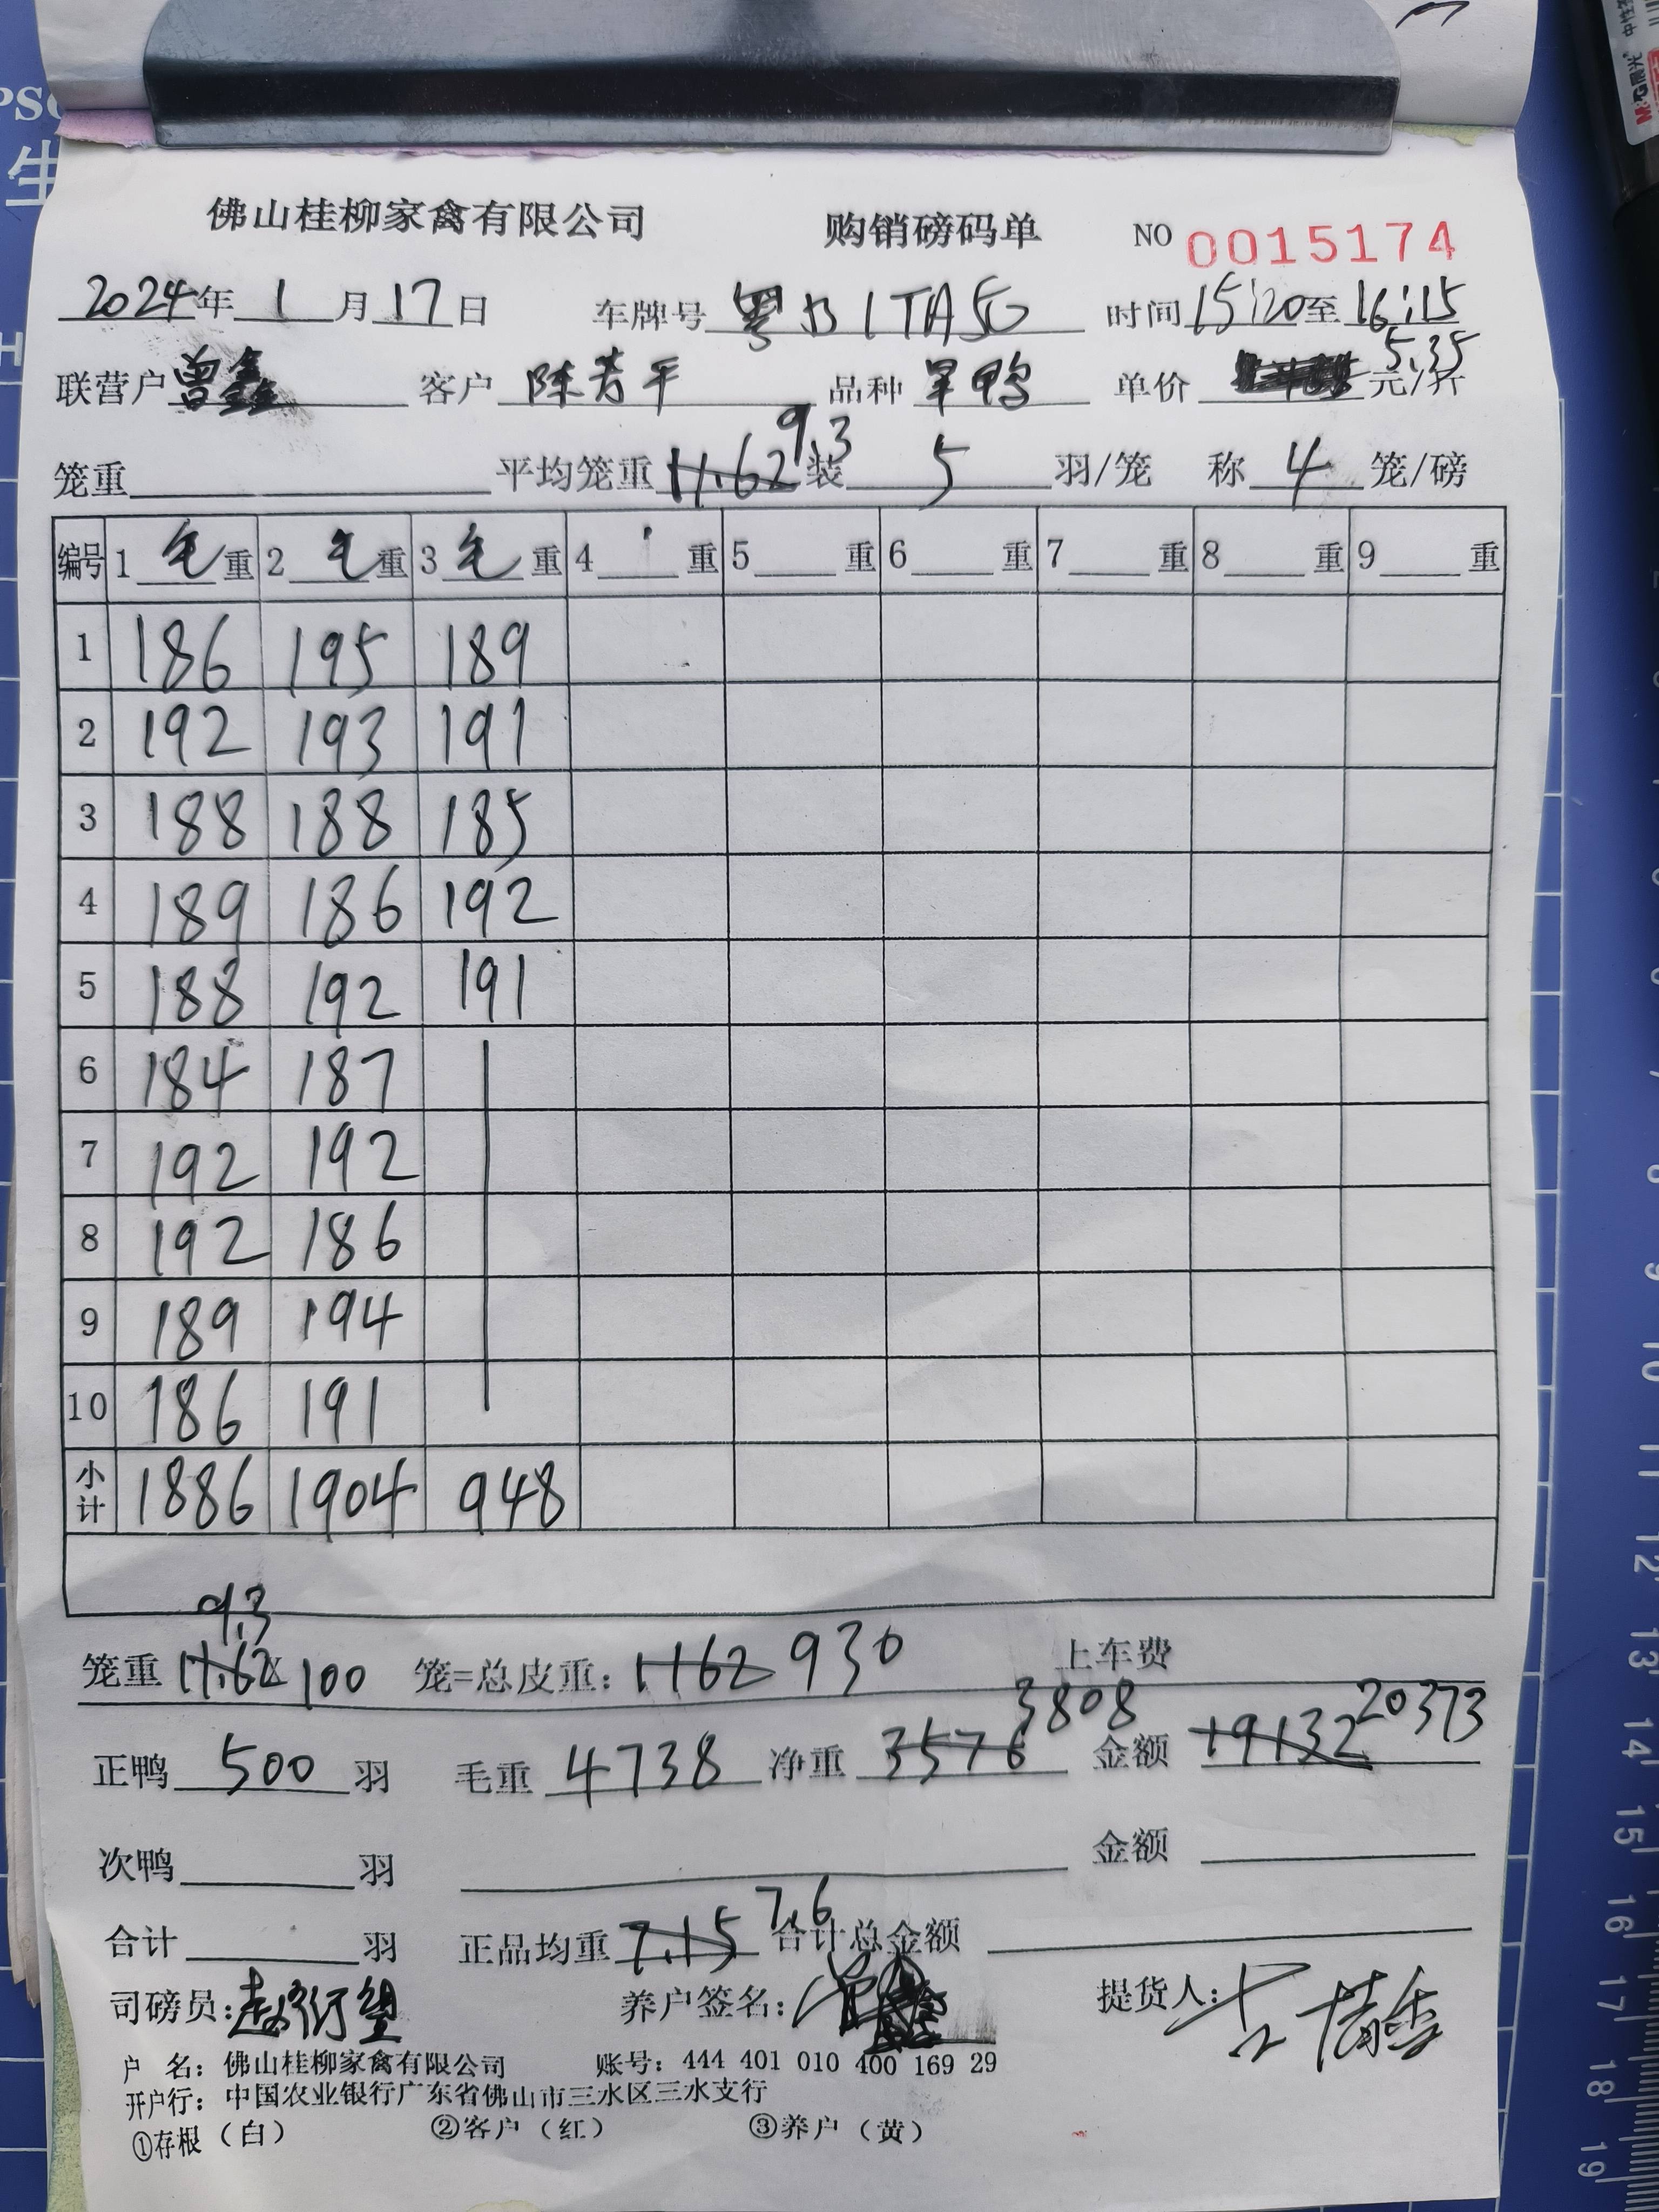 佛山桂柳家禽有限公司 购销磅码单 NO 0015174
2024年 1 月 17 日 车牌号 粤B1TA5G 时间 15:20 至 16:15
联营户 曾鑫 客户 陈芳平 品种 旱鸭 单价 5.35 元/斤
笼重 平均笼重 11.62 9.3 装 5 羽/笼 称 4 笼/磅
编号 1 毛 重 2 毛 重 3 毛 重 4 重 5 重 6 重 7 重 8 重 9 重
1 186 195 189
2 192 193 191
3 188 188 185
4 189 186 192
5 188 192 191
6 184 187
7 192 192
8 192 186
9 189 194
10 186 191
小计 1886 1904 948
笼重 11.62 9.3 x 100 笼=总皮重: 1162 930 上车费
正鸭 500 羽 毛重 4738 净重 3576 3808 金额 19132 20373
次鸭 羽 金额
合计 羽 正品均重 7.15 7.6 合计总金额
司磅员: 养户签名: 提货人:
户 名: 佛山桂柳家禽有限公司 账号: 444 401 010 400 169 29
开户行: 中国农业银行广东省佛山市三水区三水支行
①存根（白） ②客户（红） ③养户（黄）